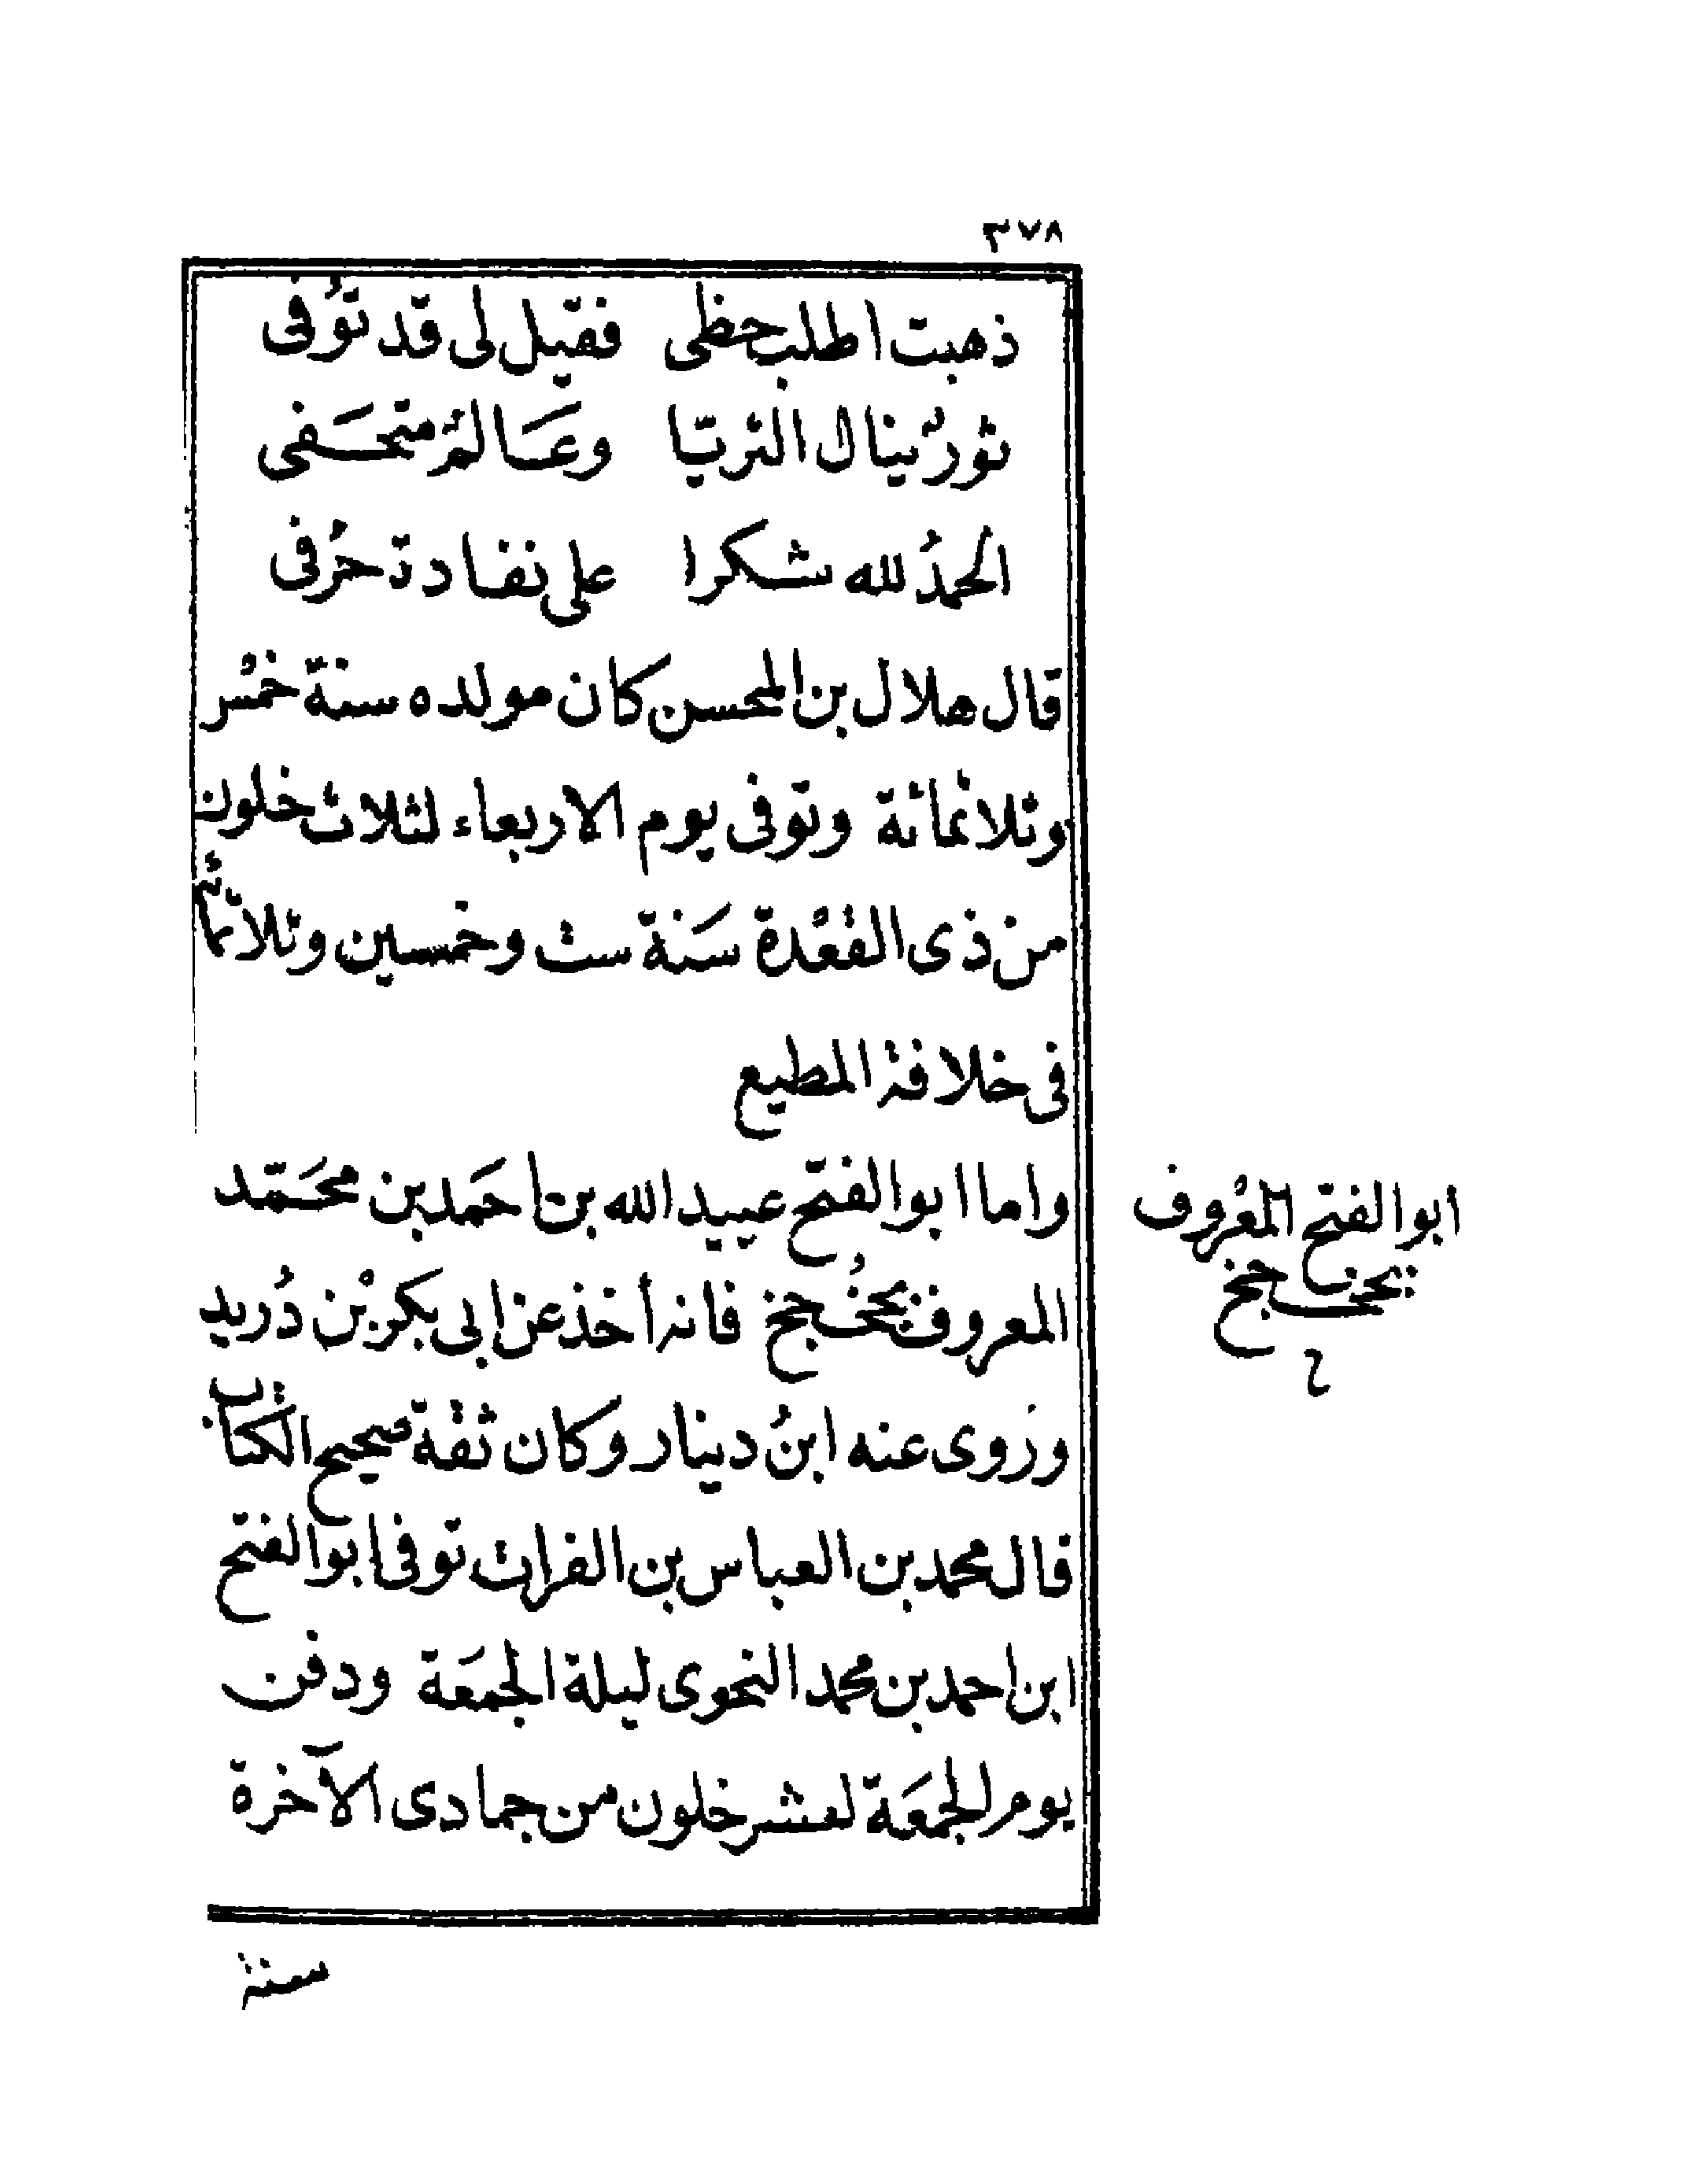 ٣٧٨
ذهبت اطلب حظى فقيل لى قد توُفى
ثورٌ ينال الثريّا وعَالمٌ متحَفى
الحمدُ لله شكرا على نفادة حُرفى
قال هلال بن المحسن كان مولده سنة خمسْ
وثلاثمائة وتوفى يوم الاربعاء لثلاث خلون
من ذى القعْدة سَنة ست وخمسين وثلاثمائة
فى خلافة المطيع
واما ابو الفتح عبيد الله بن احَمد بن محَمّد
المعروف بجخُجخ فانه أخذ عن ابى بكر بْن دُريد
وروى عنه ابنُ دينار وكان ثقة صحيح الكتاب
قال محمد بن العباس بن الفرات توفى ابو الفتح
ابن احمد بن محمد النحوى ليلة الجمعَة ودفن
يوم الجمعَة لعشر خلون من جمادى الآخرة
ابو الفتح المعْروف
بجخجخ
سنة